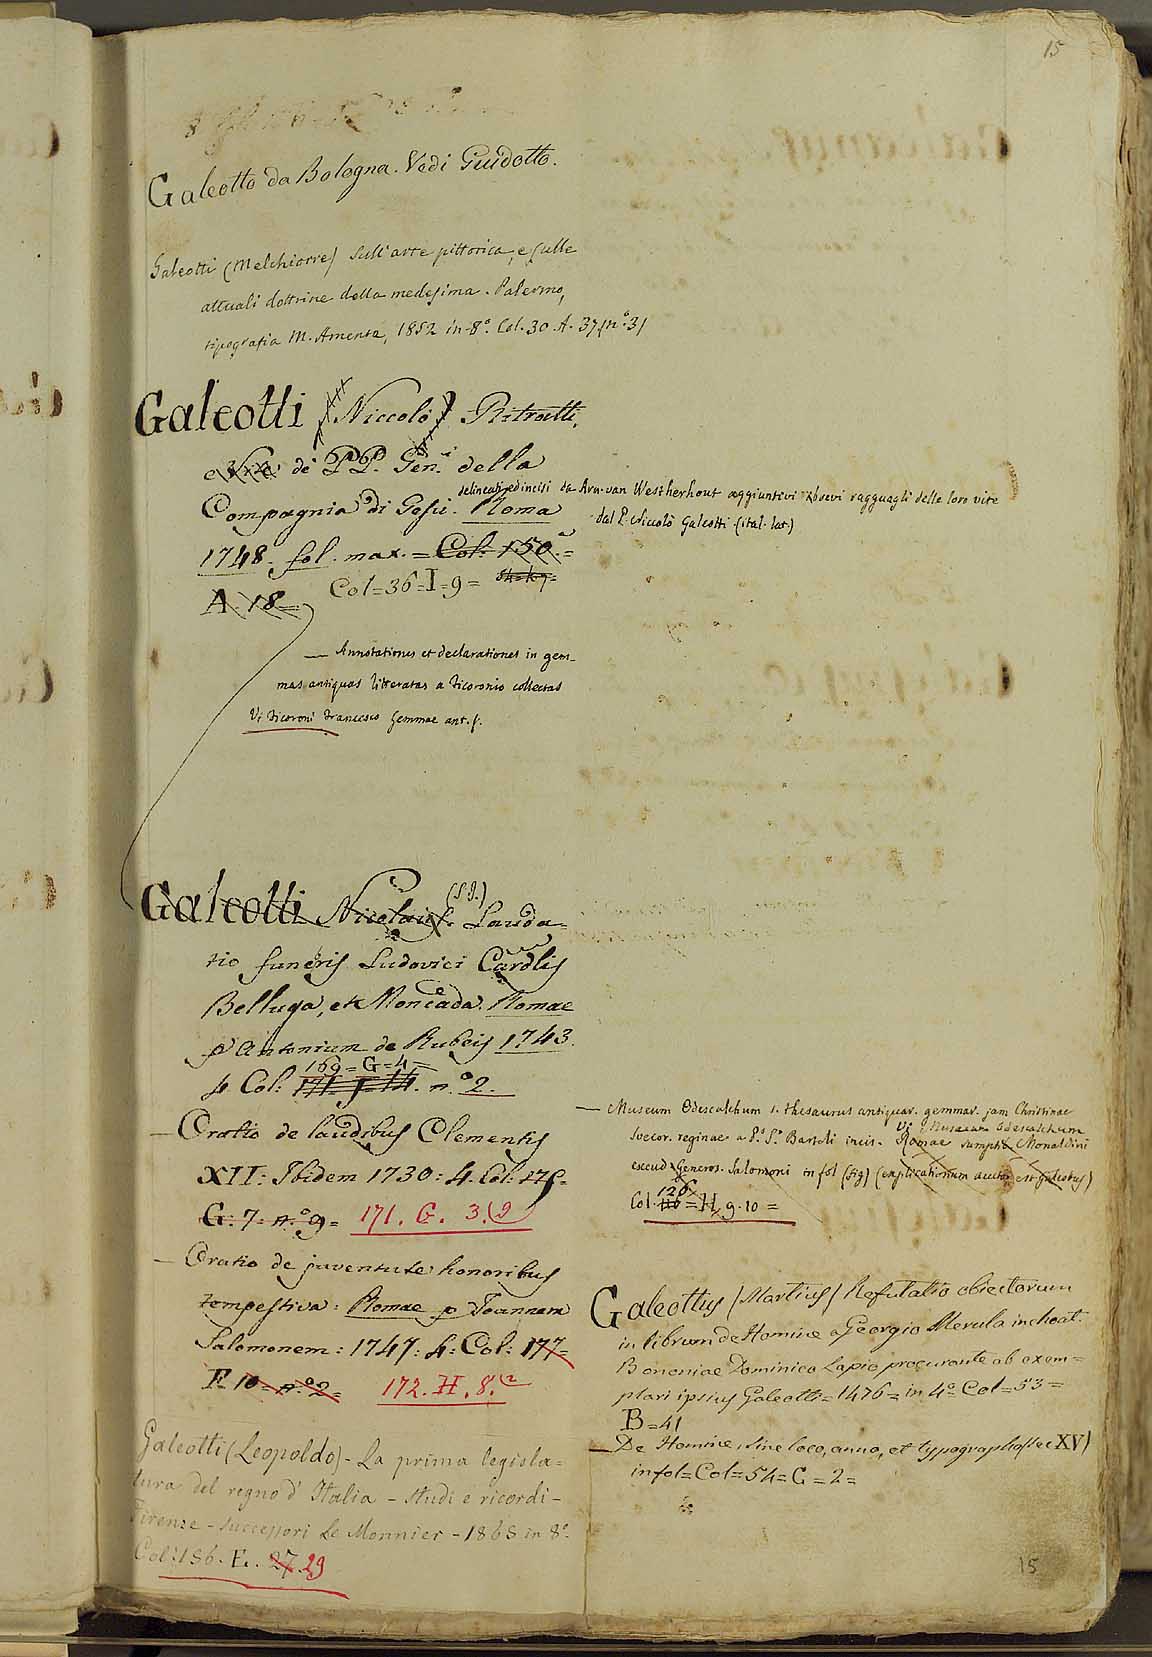 15
Galeotto da Bologna. Vedi Guidotto.
Galeotti (Melchiorre) Sull'arte pittorica, e sulle
attuali dottrine della medesima. Palermo,
tipografia M. Amenta, 1852 in-8.º Col. 30. A. 37 (n.º 3)
Galeotti (Niccolò) Ritratti,
e Vite de PP. Gen.i della
delineati ed incisi da Arn. van Westherhout aggiuntivi i brevi ragguagli delle loro vite
Compagnia di Gesù. Roma
dal P. Niccolò Galeotti (ital. lat.)
1748. fol. max. = Col: 150 =
A. 18 = Col = 36 = I = 9 =
— Annotationes et declarationes in gem-
mas antiquas litteratas a Ficoronio collectas
V. Ficoroni Francesco Gemmae ant. f.
Galeotti Nicolaus (S.J.) Lauda-
tio funeris Ludovici Cardlis
Belluga, et Moncada. Romae
p Antonium de Rubeis 1743.
169 = G = 4 =
4 Col: n.º 2.
— Oratio de laudibus Clementis
XII: Ibidem 1730: 4. Col:
G. 7. n.º 9 = 171. G. 3. (2
— Oratio de juventute honoribus
tempestiva: Romae p Joannem
Salomonem: 1747: 4: Col: 177 =
F. 10 = n.º 2 = 172. H. 8. (2
Galeotti (Leopoldo) - La prima legisla=
tura del regno d'Italia - studi e ricordi -
Firenze - successori Le Monnier - 1868 in 8º.
Col: 186. E. 27. 29
— Museum Odescalchum s. thesaurus antiquar. gemmar. jam Christinae
V. Musaeum Odescalchum
Svecor. reginae a P.º S.º Bartoli incis. Romae sumptib. Monaldini
excud. Generos. Salomoni in fol (fig) (explicationum auctor est Galeotus)
126
Col. 116 = H, 9. 10 =
Galeottus (Martius) Refutatio obiectorum
in librum de Homine a Georgio Merula inchoat.
Bononiae Dominico Lapio procurante ab exem=
plari ipsius Galeotti = 1476 = in 4º Col = 53 =
B = 41
— De Homine, sine loco, anno, et typographo (sec XV)
in fol = Col = 54 = C = 2 =
15